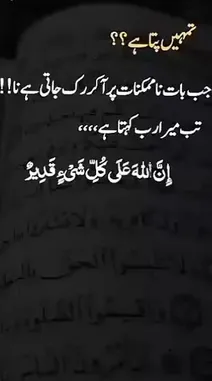 تمہیں پتا ہے؟؟
جب بات ناممکنات پر آکر رک جاتی ہے نا!!
تب میرا رب کہتا ہے،،،،
إِنَّ اللهَ عَلَى كُلِّ شَيْءٍ قَدِيرٌ